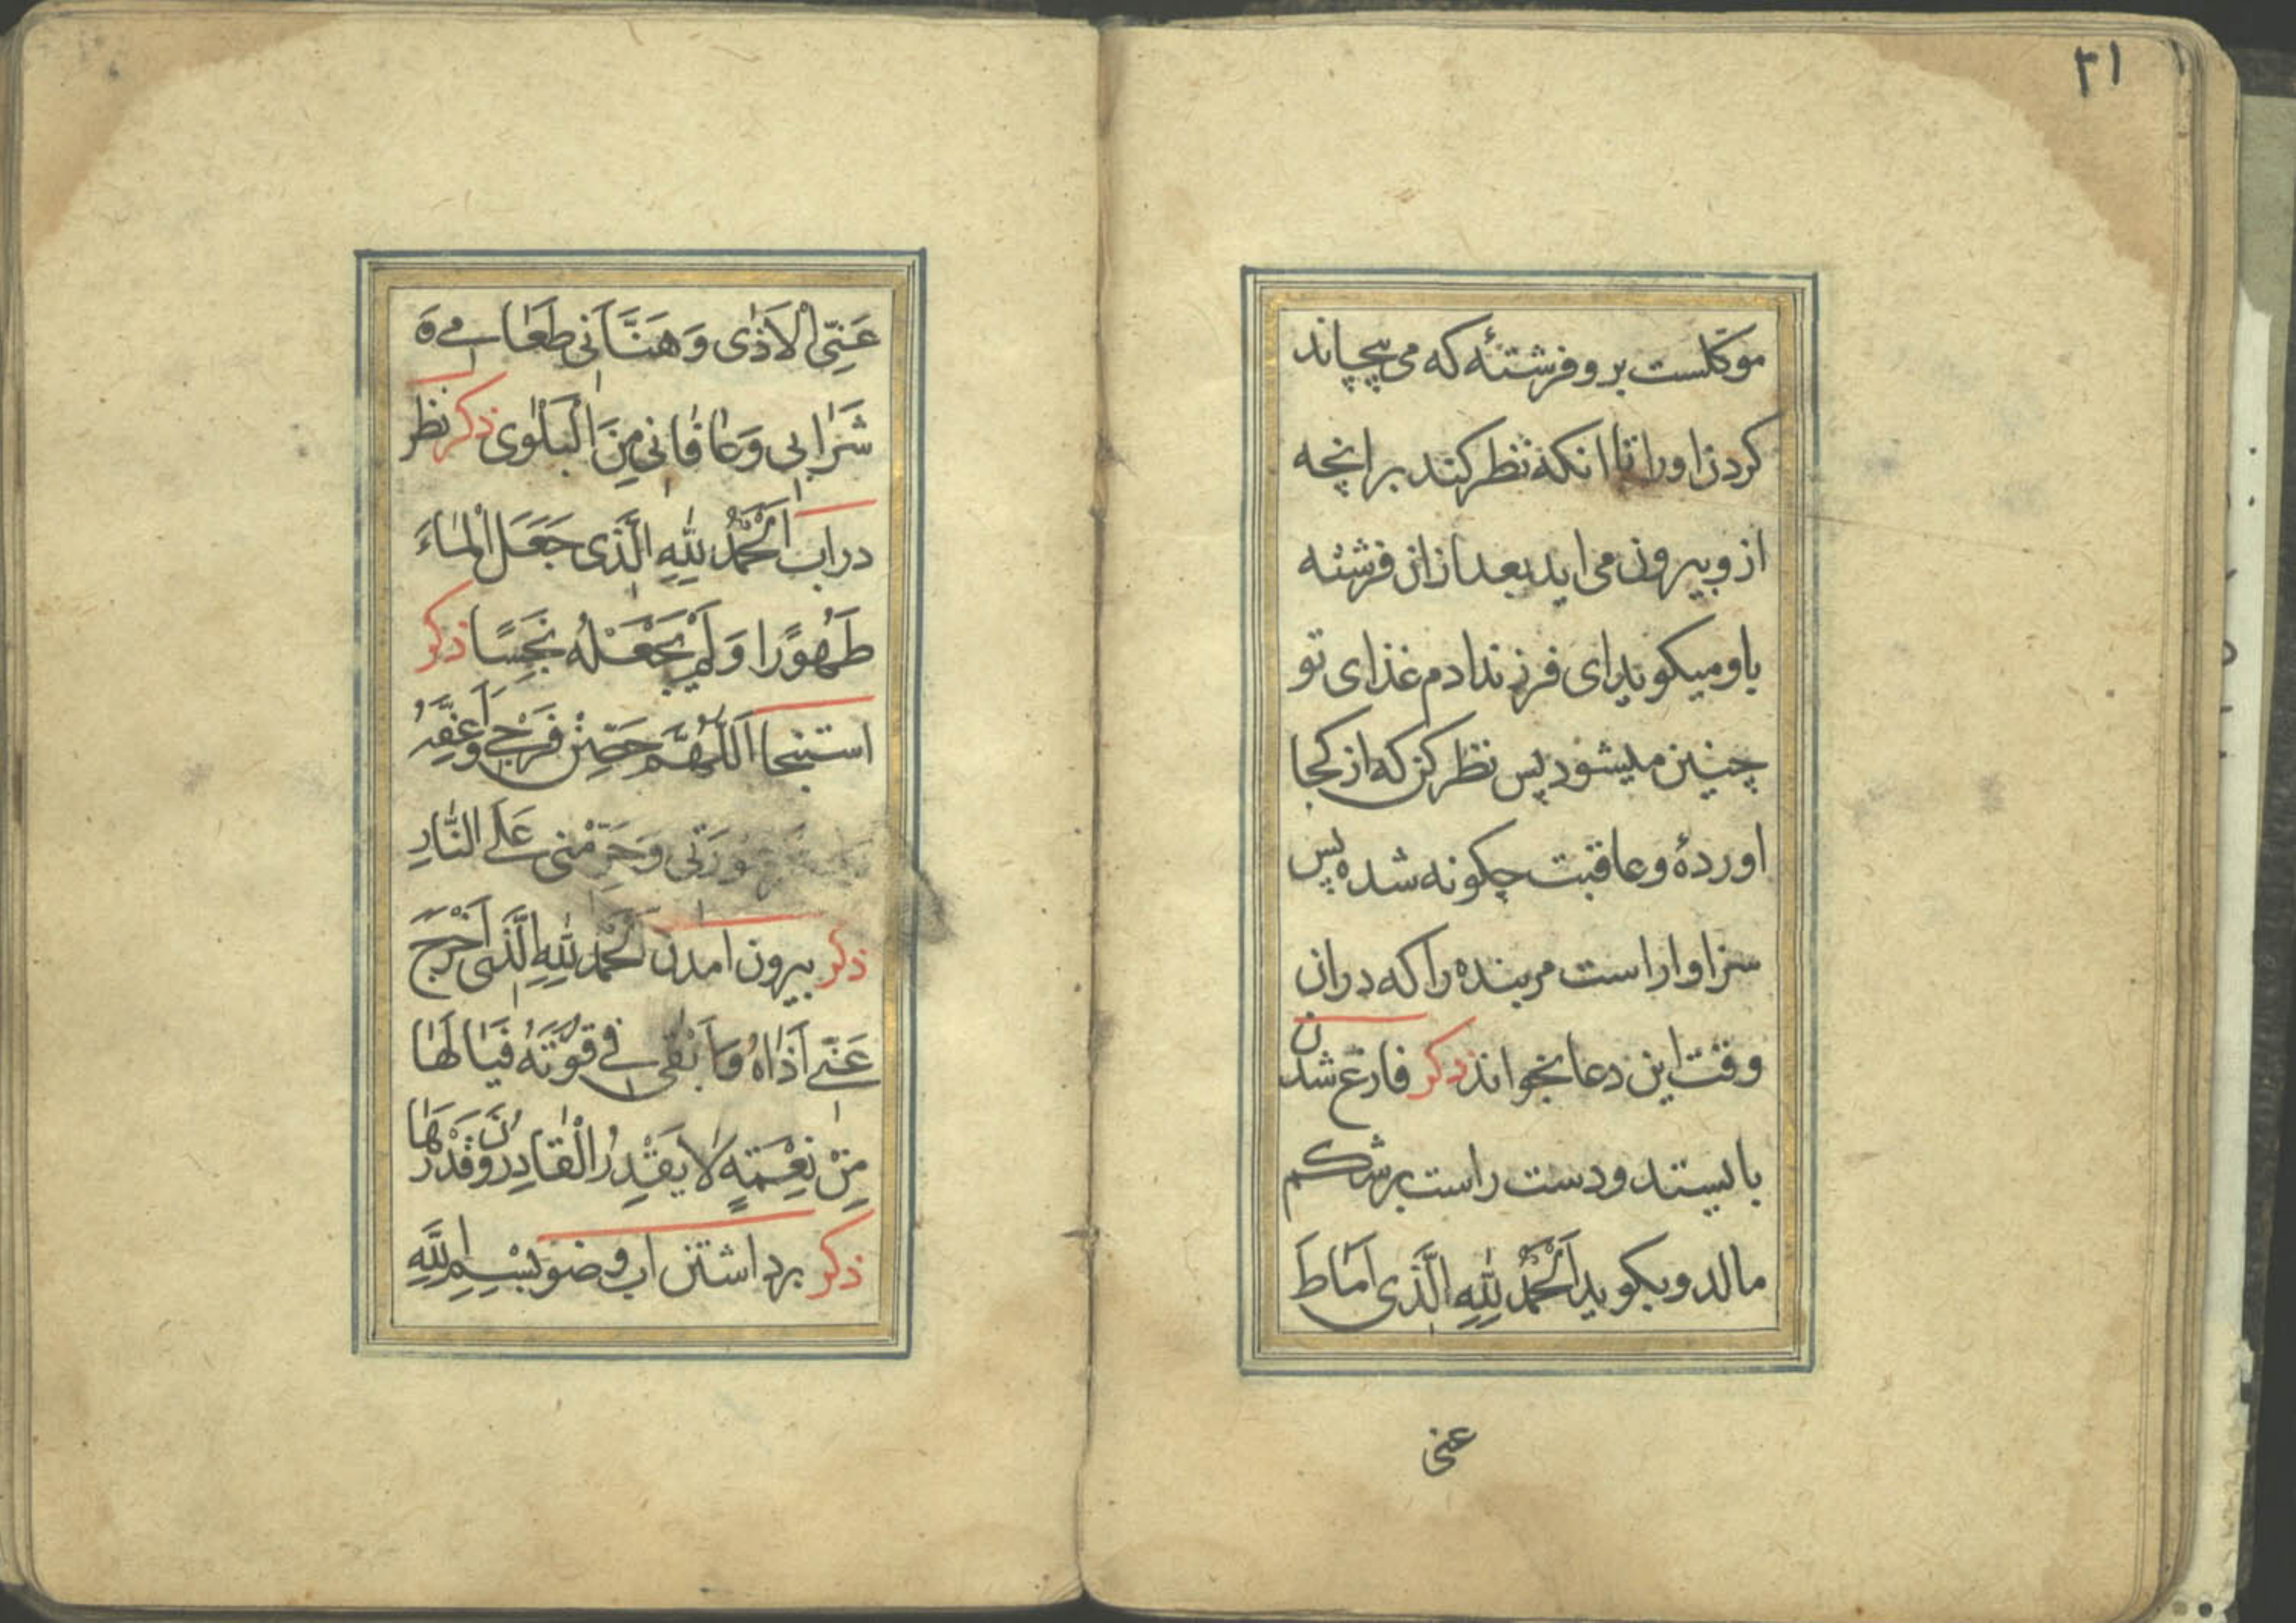 ۲۱
موکلست برو فرشتۀ که می پیچاند
کردن اورا تا انکه نظر کند برانچه
ازو بیرون می اید بعد ازان فرشته
باو میکوید ای فرزند ادم غذای تو
چنین میشود پس نظر کن که از کجا
اوردۀ و عاقبت چکونه شده پس
سزاوار است مر بنده را که دران
وقت این دعا بخواند ذکر فارغ شدن
بایستد و دست راست بر شکم
مالد و بکوید اَلْحَمْدُ لِلّٰهِ الَّذی اَمَاطَ
عنی
عَنِّی الْاَذٰی وَ هَنَّاَنی طَعَامی وَ
شَرَابی وَ عَافَانی مِنَ الْبَلْوٰی ذکر نظر
در اب اَلْحَمْدُ لِلّٰهِ الَّذی جَعَلَ الْمَاءَ
طَهُورًا وَ لَمْ یَجْعَلْهُ نَجِسًا ذکر
استنجا اَللّٰهُمَّ حَصِّنْ فَرْجی وَ اَعِفَّهُ
عَوْرَتی وَ حَرِّمْنی عَلَی النَّارِ
ذکر بیرون امدن اَلْحَمْدُ لِلّٰهِ الَّذی اَخْرَجَ
عَنّی اَذَاهُ وَ اَبْقٰی فی قُوَّتَهُ فَیَا لَهَا
مِنْ نِعْمَةٍ لَا یَقْدِرُ الْقَادِرُونَ قَدْرَهَا
ذکر برداشتن اب وضو بِسْمِ اللّٰهِ